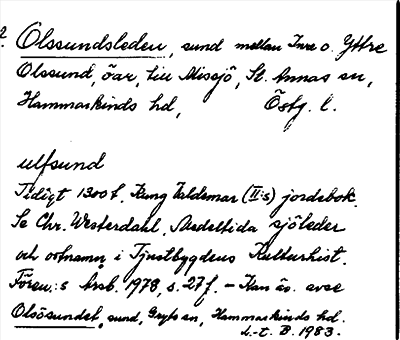 Olssundsleden, sund mellan Inre o. Yttre
Olssund, öar, till Missjö, St. Annas sn,
Hammarkinds hd, Östg. l.
ulfsund
Tidigt 1300t. Kung Valdemar (II:s) jordebok.
Se Chr. Westerdahl, Medeltida sjöleder
och ortnamn i Tjustbygdens Kulturhist.
Fören:s Årsb. 1978, s. 27 f. - Kan äv. avse
Olsösundet, sund, Gryts sn, Hammarkinds hd.
L.-t. B. 1983.